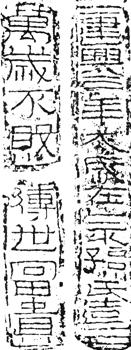 建興三年太歲在
氏造
萬歲不敗
傳世富貴